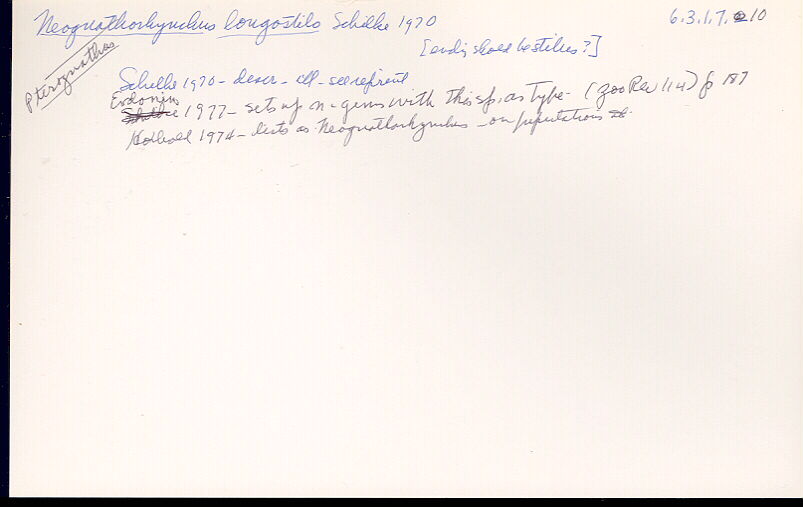 Neognathorhynchus longostilo Schilke 1970 6.3.1.7.10
[ending should be stilus?]
Pterognathus
Schilke 1970 - descr - ill - see reprint
Erdonin 1977 - sets up n-genus with this sp. as type - (Zoo Rec 114) p 187
1974 - lists as Neognathorhynchus - on populations